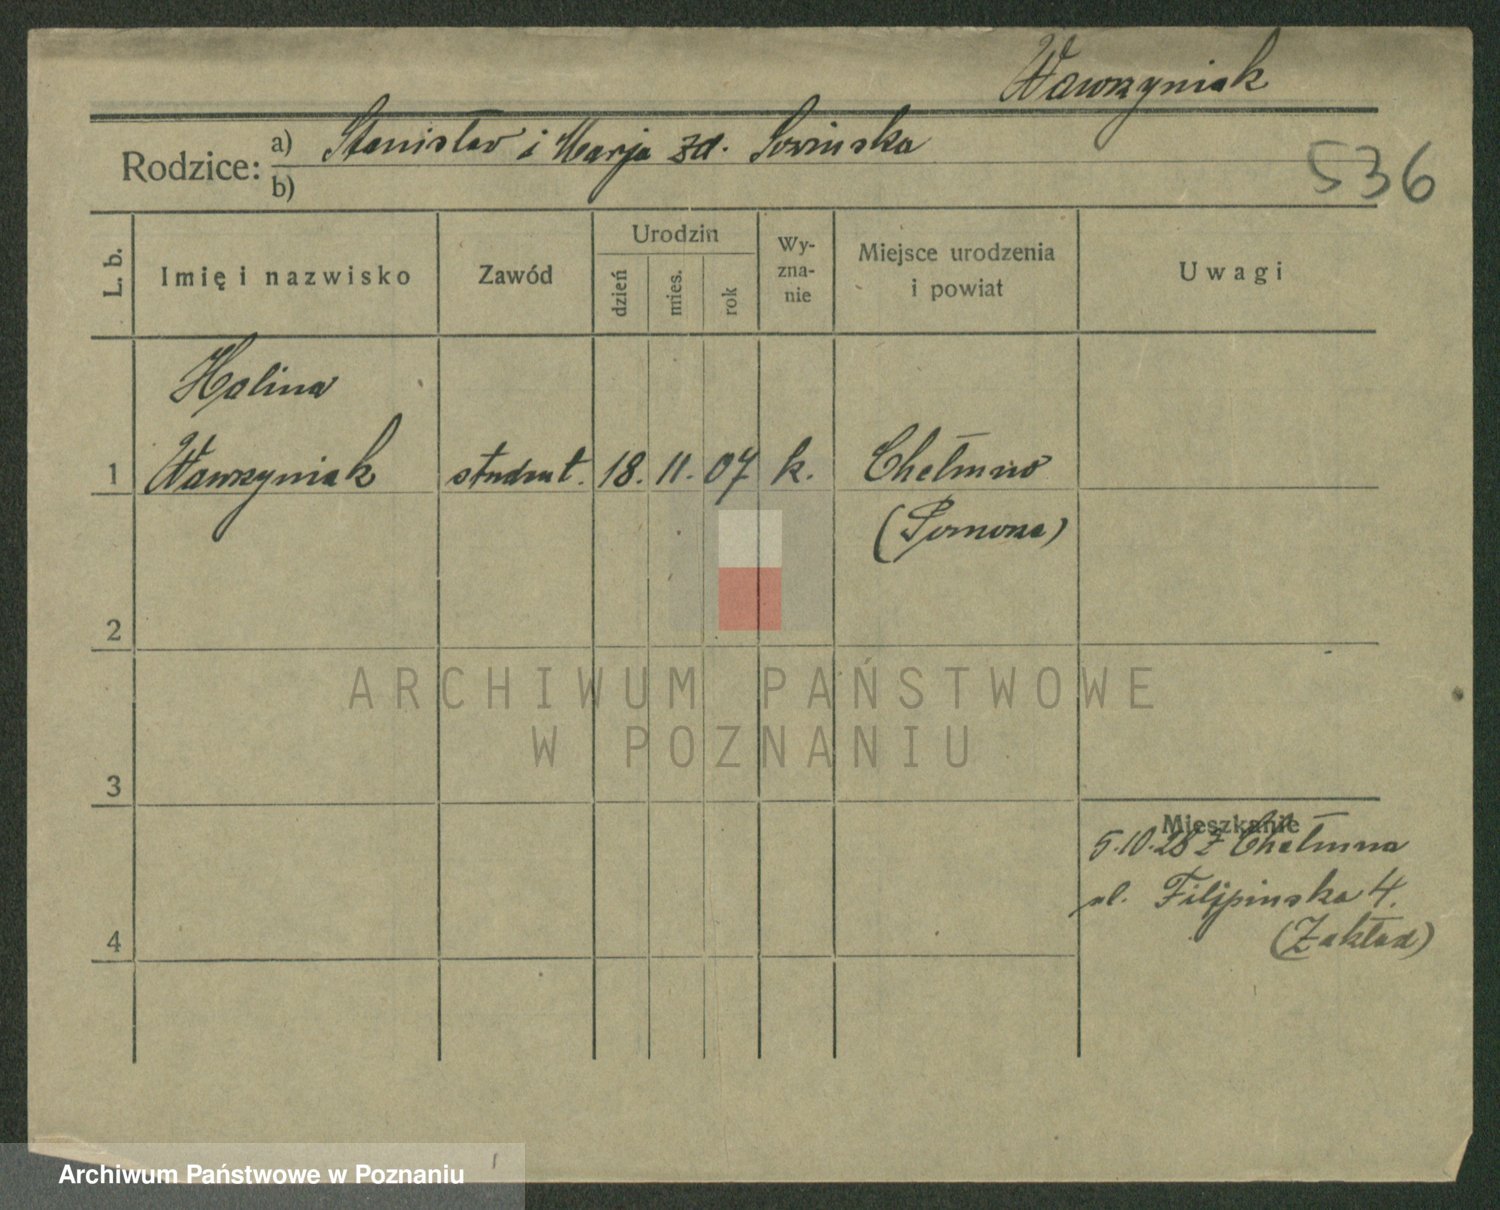 Wawrzyniak
Rodzice: a) Stanisław i Marja zd. Sowińska
b)
536
L. b. Imię i nazwisko Zawód Urodzin dzień mies. rok Wy-zna-nie Miejsce urodzenia i powiat Uwagi
Halina
1 Wawrzyniak student. 18. 11. 07 k. Chełmno
(Pomorze)
2
ARCHIWUM PAŃSTWOWE
W POZNANIU
3
Mieszkanie
5.10.28 z Chełmna
ul. Filipińska 4.
(Zakład)
4
Archiwum Państwowe w Poznaniu